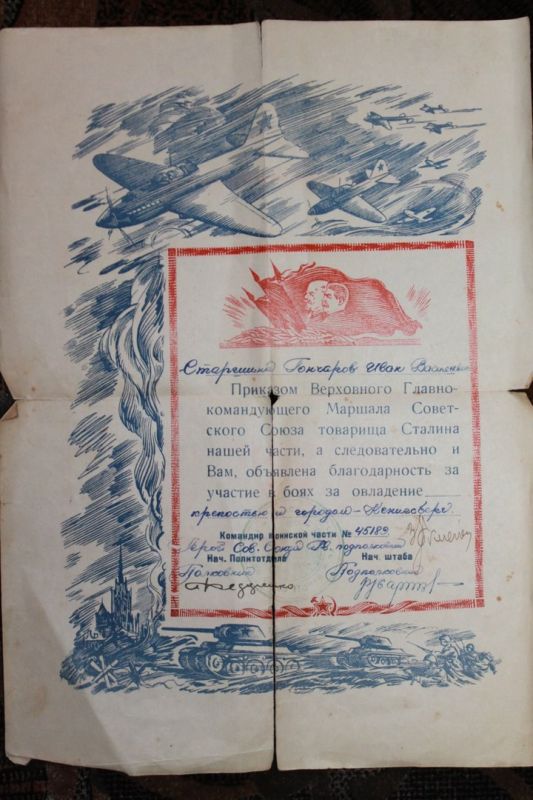 Старшина Гончаров Иван
Приказом Верховного Главно-
командующего Маршала Совет-
ского Союза товарища Сталина
нашей части, а следовательно и
Вам, объявлена благодарность за
участие в боях за овладение
крепостью и городом - Кенигсберг.
Командир воинской части № 45189
Герой Сов. Союза Гв. подполковник
Нач. Политотдела Нач. штаба
Полковник Подполковник